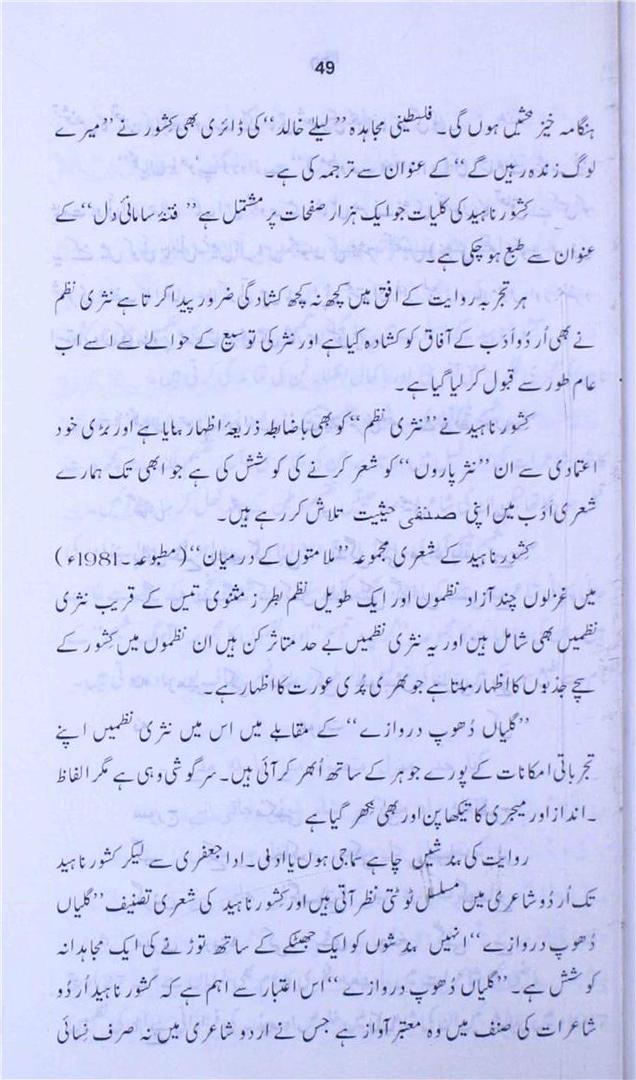 49
ہنگامہ خیز بحثیں ہوں گی۔ فلسطینی مجاہدہ ”لیلےٰ خالد“ کی ڈائری بھی کِشور نے ”میرے
لوگ زندہ رہیں گے“ کے عنوان سے ترجمہ کی ہے۔
کِشور ناہید کی کلیات جو ایک ہزار صفحات پر مشتمل ہے ”فتنۂ سامانیٔ دل“ کے
عنوان سے طبع ہو چکی ہے۔
ہر تجربہ روایت کے اُفق میں کچھ نہ کچھ کشادگی ضرور پیدا کرتا ہے نثری نظم
نے بھی اُردُو اَدَب کے آفاق کو کشادہ کیا ہے اور نثر کی توسیع کے حوالے سے اسے اب
عام طور سے قبول کر لیا گیا ہے۔
کِشور ناہید نے ”نثری نظم“ کو بھی باضابطہ ذریعۂ اظہار بنایا ہے اور بڑی خود
اعتمادی سے ان ”نثر پاروں“ کو شعر کرنے کی کوشش کی ہے جو ابھی تک ہمارے
شعری اَدَب میں اپنی صنفی حیثیت تلاش کر رہے ہیں۔
کِشور ناہید کے شعری مجموعہ ”ملامتوں کے درمیان“ (مطبوعہ۔1981ء)
میں غزلوں چند آزاد نظموں اور ایک طویل نظم بطرز مثنوی تیس کے قریب نثری
نظمیں بھی شامل ہیں اور یہ نثری نظمیں بے حد متاثر کن ہیں ان نظموں میں کِشور کے
سچے جذبوں کا اظہار ملتا ہے جو بھری پُری عورت کا اظہار ہے۔
”گلیاں دُھوپ دروازے“ کے مقابلے میں اس میں نثری نظمیں اپنے
تجرباتی امکانات کے پورے جوہر کے ساتھ اُبھر کر آئی ہیں۔ سرگوشی وہی ہے مگر الفاظ
۔انداز اور میجری کا تیکھا پن اور بھی نکھر گیا ہے
روایت کی بندشیں چاہے سماجی ہون یا اَدَبی۔ ادا جعفری سے لیکر کشور ناہید
تک اُردُو شاعری میں مسلسل ٹوٹتی نظر آتی ہیں اور کشور ناہید کی شعری تصنیف ”گلیاں
دُھوپ دروازے“ انہیں بندشوں کو ایک جھٹکے کے ساتھ توڑنے کی ایک مجاہدانہ
کوشش ہے۔ ”گلیاں دُھوپ دروازے“ اس اعتبار سے اہم ہے کہ کشور ناہید اُردُو
شاعرات کی صنف میں وہ معتبر آواز ہے جس نے اردو شاعری میں نہ صرف نِسائی